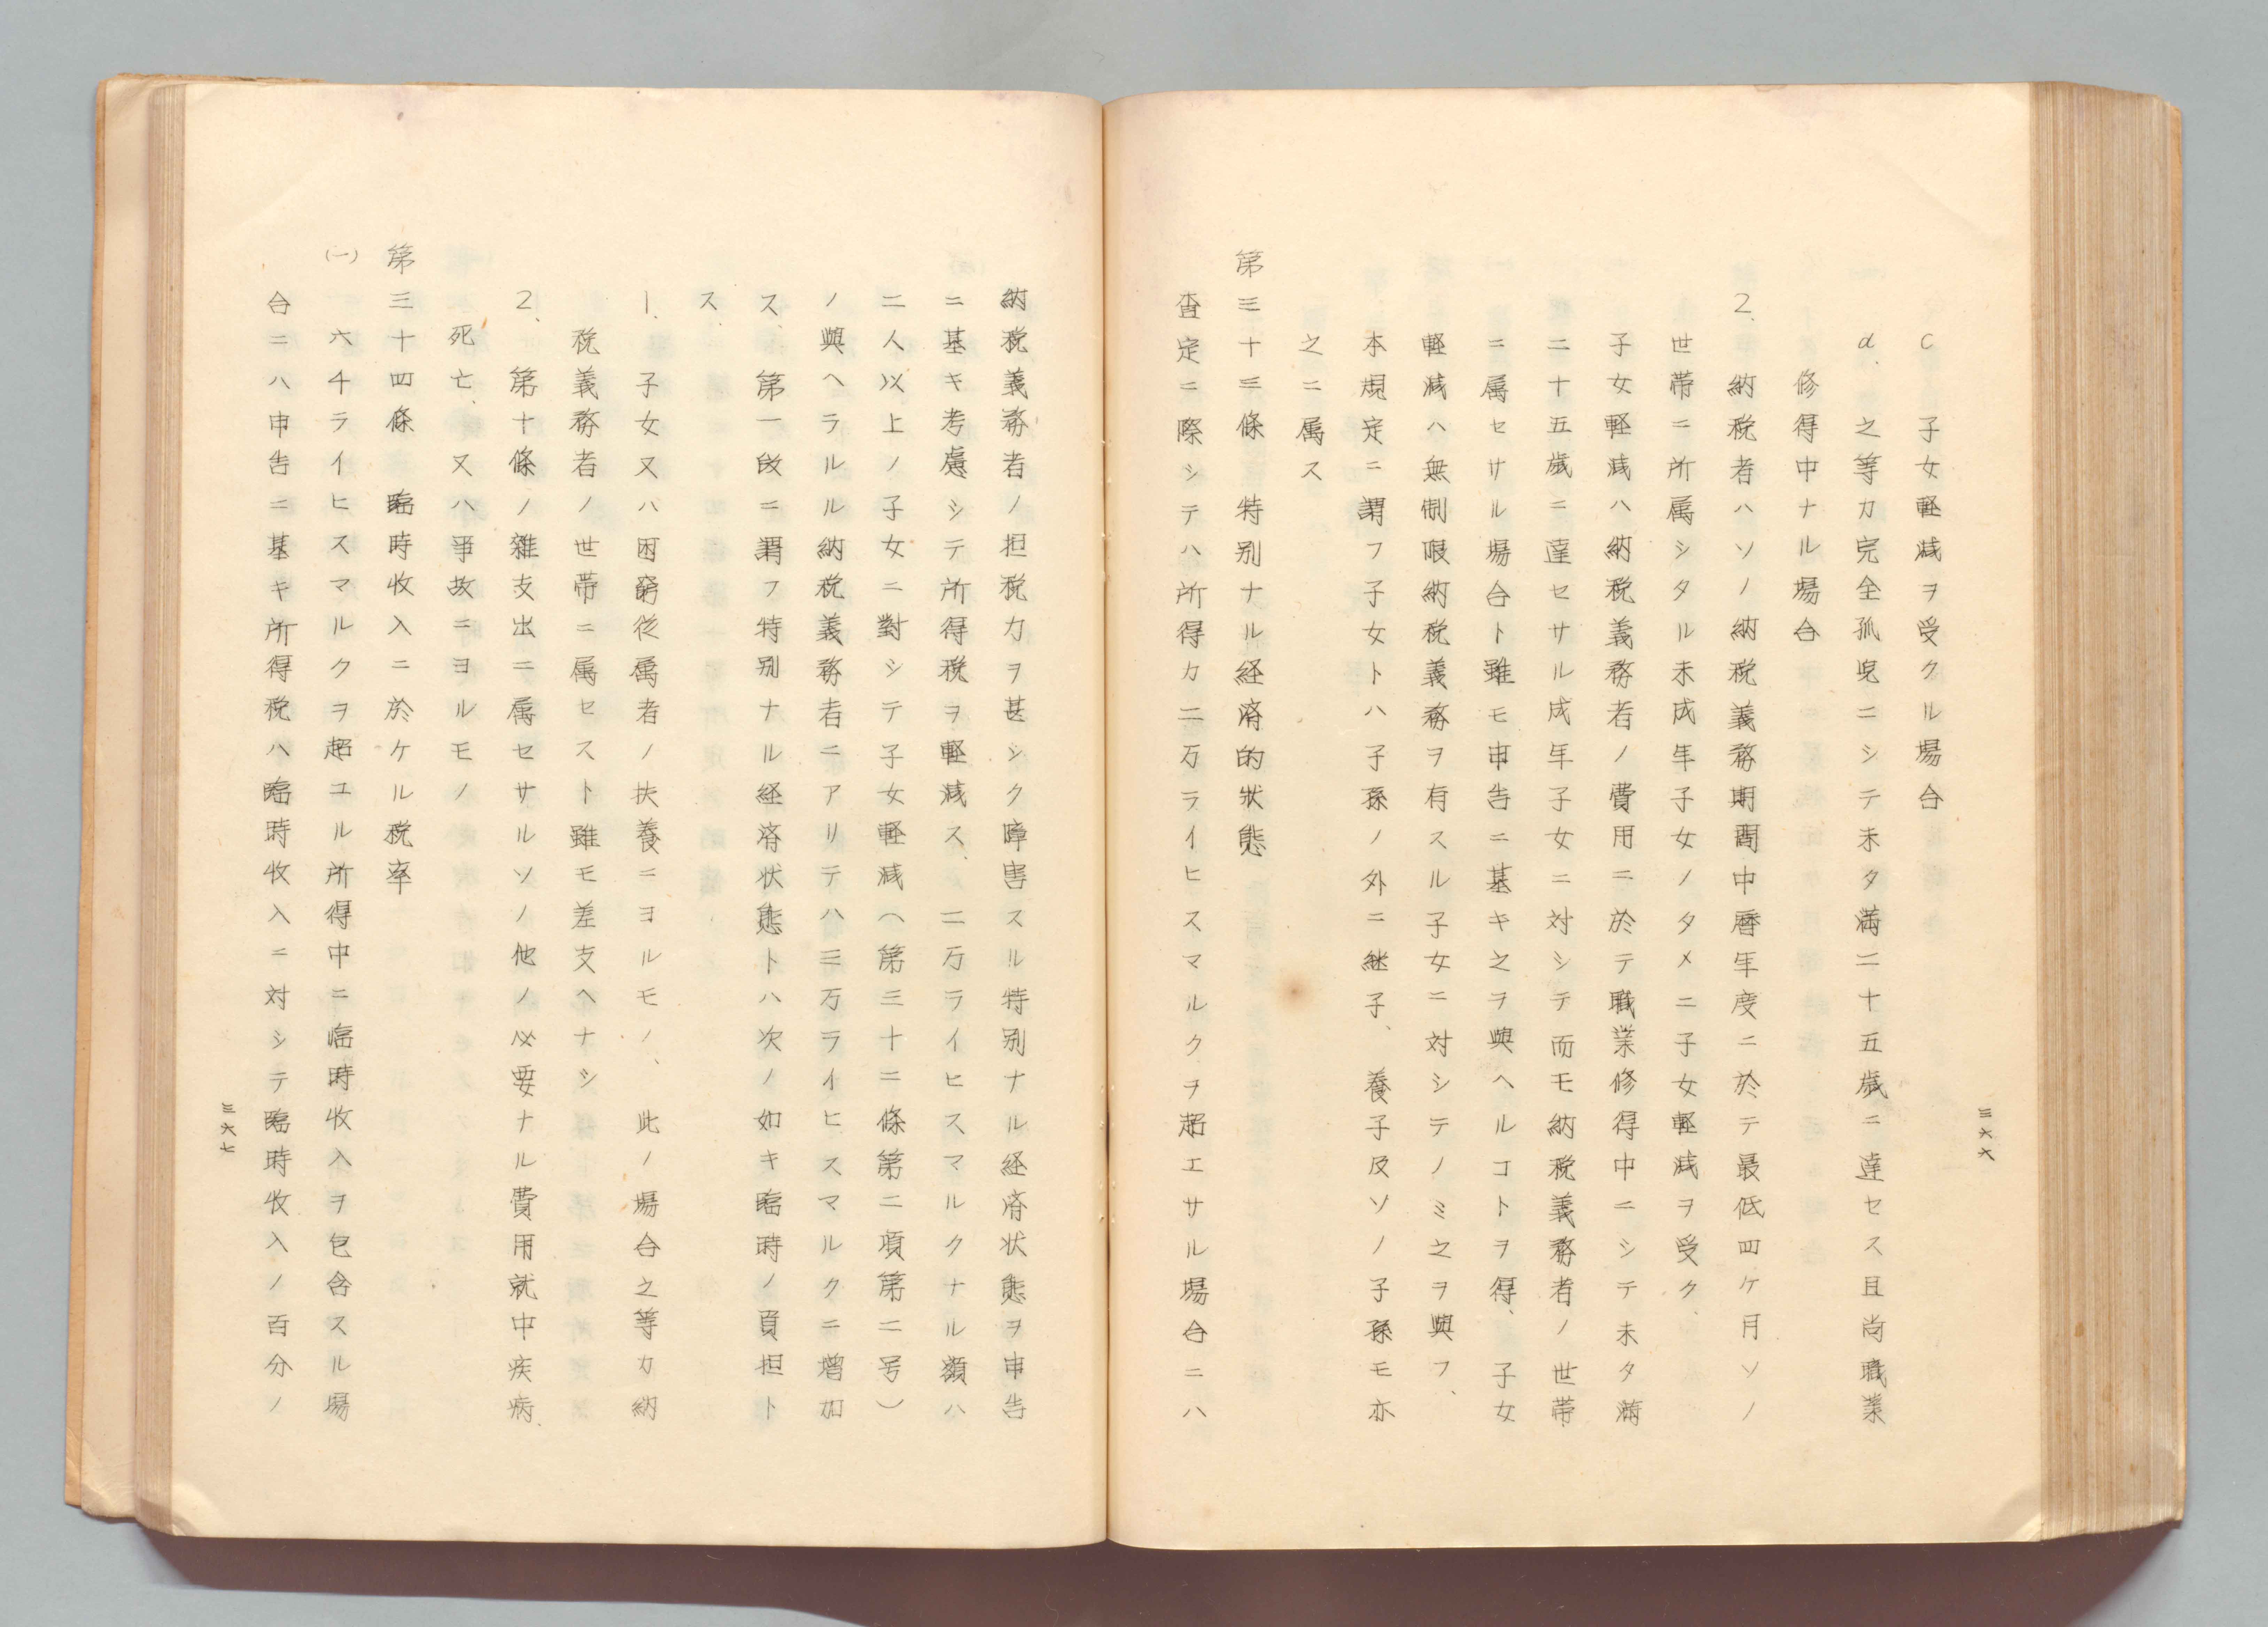 C 子女軽減ヲ受クル場合
d、之等カ完全孤児ニシテ未タ満二十五歳ニ達セス且尚職業
修得中ナル場合
2、納税者ハソノ納税義務期間中暦年度ニ於テ最低四ケ月ソノ
世帯ニ所属シタル未成年子女ノタメニ子女軽減ヲ受ク、
子女軽減ハ納税義務者ノ費用ニ於テ職業修得中ニシテ未タ満
二十五歳ニ達セサル成年子女ニ対シテ而モ納税義務者ノ世帯
ニ属セサル場合ト雖モ申告ニ基キ之ヲ與ヘルコトヲ得、子女
軽減ハ無制限納税義務ヲ有スル子女ニ対シテノミ之ヲ與フ、
本規定ニ謂フ子女トハ子孫ノ外ニ継子、養子及ソノ子孫モ亦
之ニ属ス
第三十三條 特別ナル経済的状態
査定ニ際シテハ所得カ二万ライヒスマルクヲ超エサル場合ニハ
三六六
納税義務者ノ担税力ヲ甚シク障害スル特別ナル経済状態ヲ申告
ニ基キ考慮シテ所得税ヲ軽減ス、二万ライヒスマルクナル額ハ
二人以上ノ子女ニ對シテ子女軽減（第三十二條第二項第二号）
ノ與ヘラルル納税義務者ニアリテハ三万ライヒスマルクニ増加
ス、第一段ニ謂フ特別ナル経済状態トハ次ノ如キ臨時ノ負担ト
ス、
1、子女又ハ困窮従属者ノ扶養ニヨルモノ、此ノ場合之等カ納
税義務者ノ世帯ニ属セスト雖モ差支ヘナシ
2、第十條ノ雑支出ニ属セサルソノ他ノ必要ナル費用就中疾病、
死亡、又ハ事故ニヨルモノ
第三十四條 臨時收入ニ於ケル税率
(一) 六千ライヒスマルクヲ超ユル所得中ニ臨時收入ヲ包含スル場
合ニハ申告ニ基キ所得税ハ臨時收入ニ対シテ臨時收入ノ百分ノ
三六七